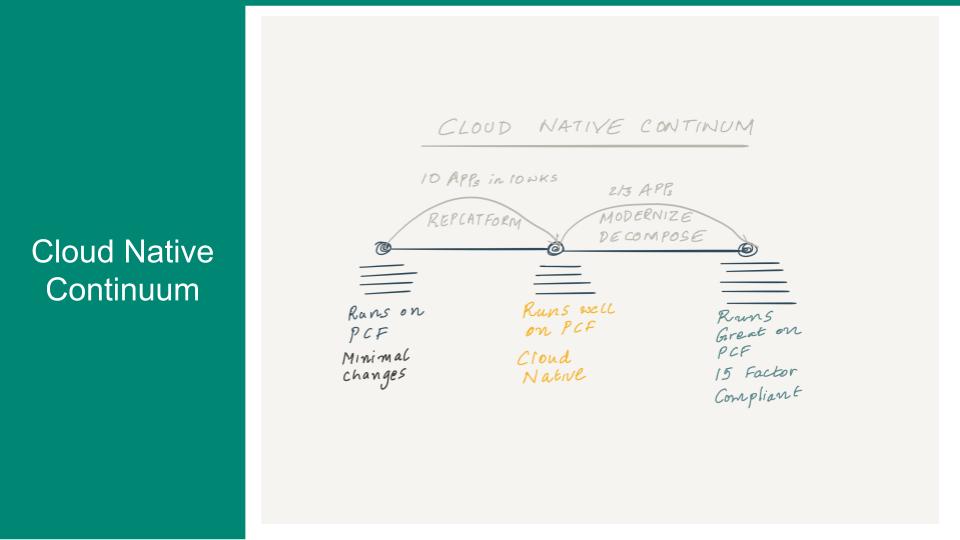 Cloud Native
Continuum
CLOUD NATIVE CONTINUM
10 APPs in 10 wks
2/3 APPs
REPLATFORM
MODERNIZE
DECOMPOSE
Runs on
PCF
Minimal
changes
Runs well
on PCF
Cloud
Native
Runs
Great on
PCF
15 Factor
Compliant